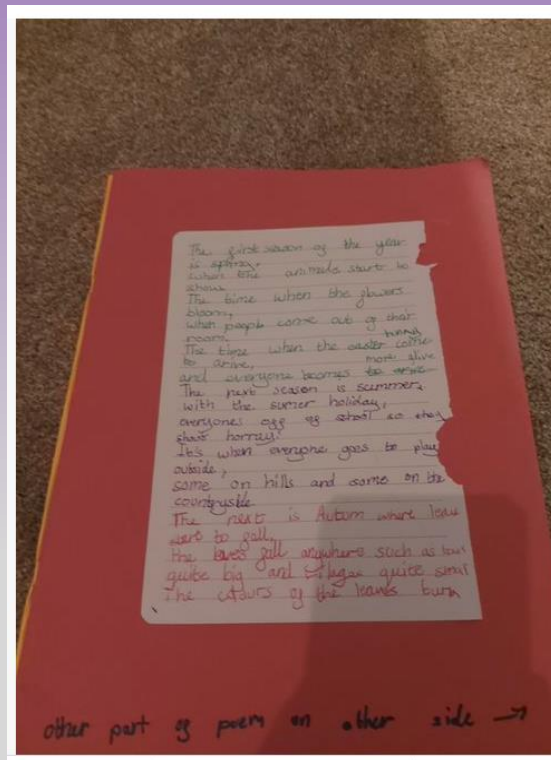 The first season of the year
is spring.
when the animals start to
show
The time when the flowers
bloom,
when people come out of their
room,
The time when the easter bunnys come
to arive,
and everyone becomes more alive
The next season is summer,
with the sumer holiday,
everyones off of school so they
shout horray!
It's when everyone goes to play
outside,
some on hills and some on the
countryside
The next is Autum where leav
start to fall,
the leaves fall anywhere such as
quite big and quite smal
The colours of the leaves burn
other part of poem on other side →